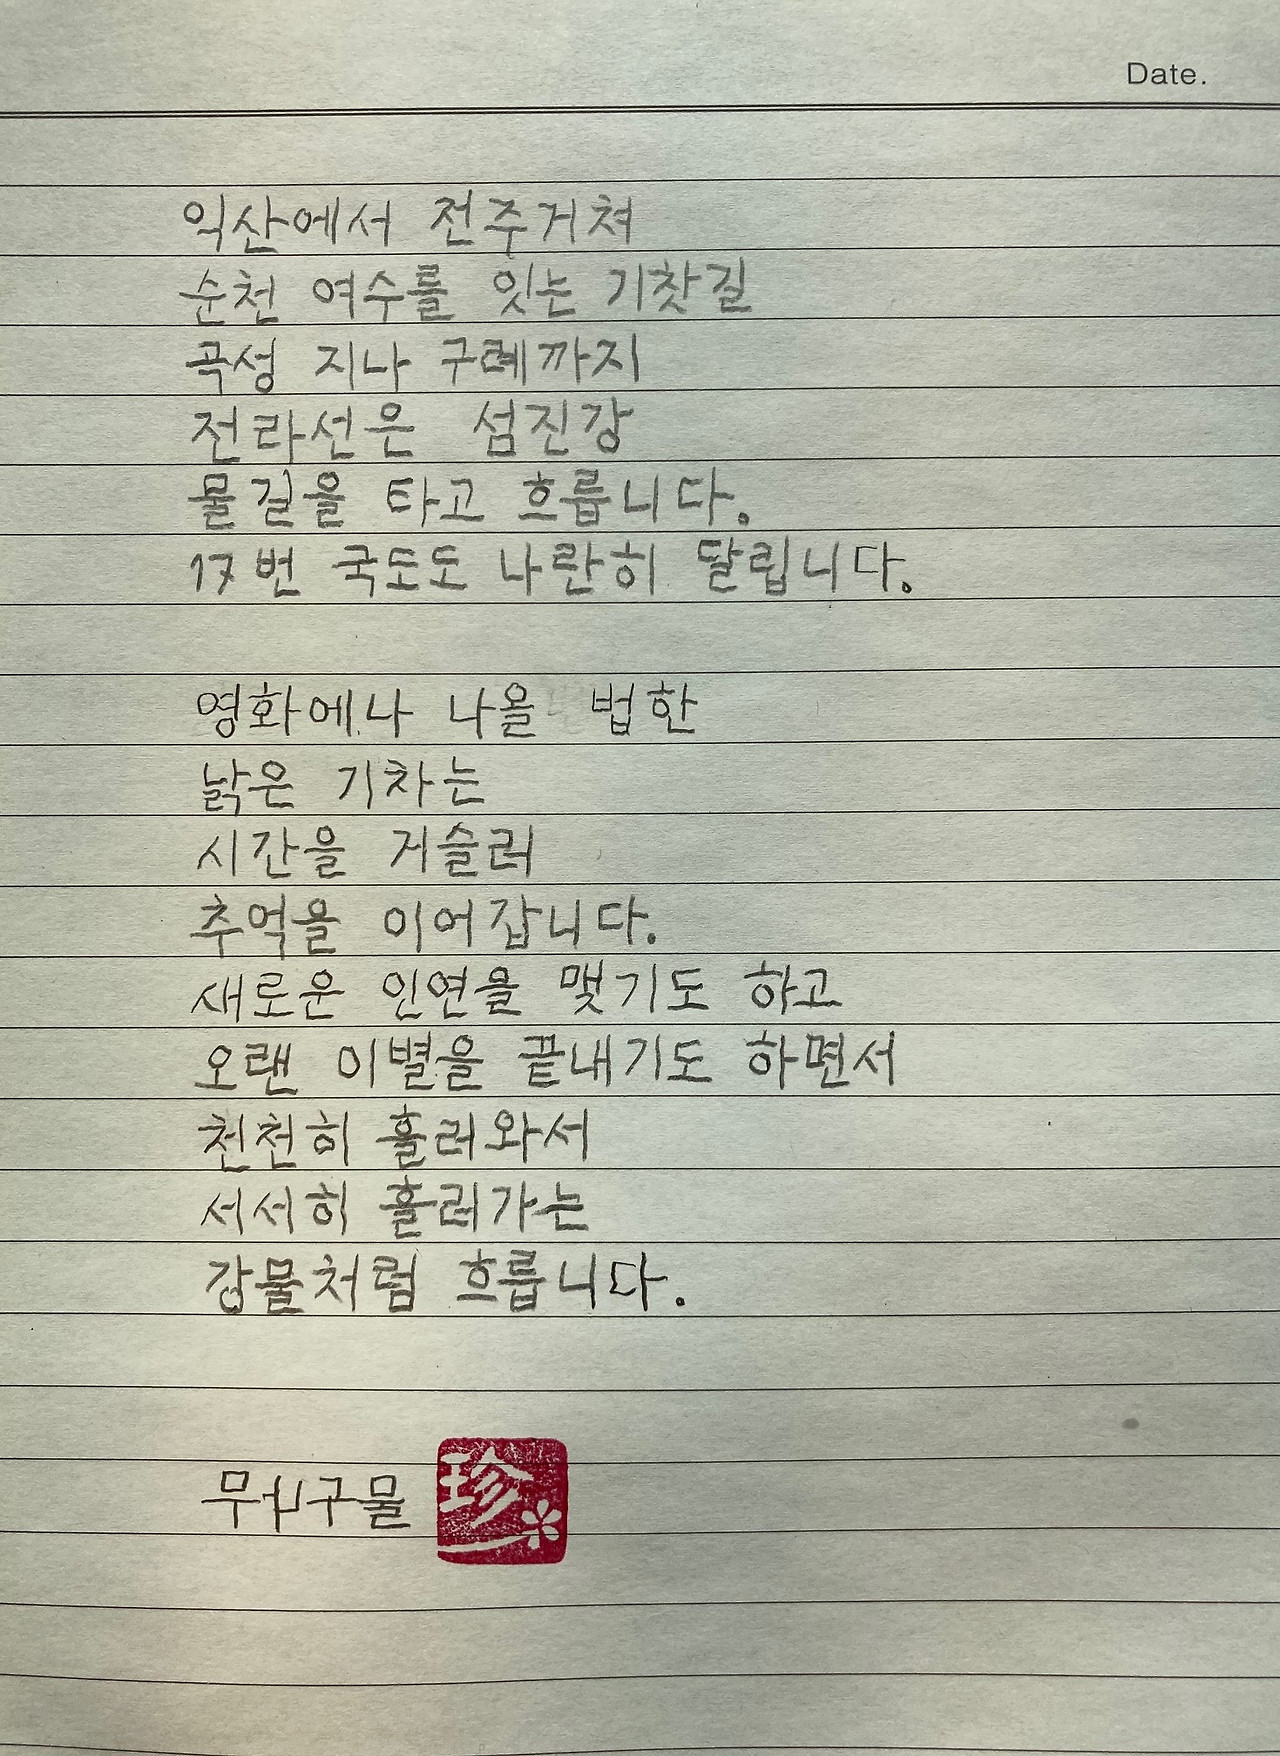 Date.
익산에서 전주거쳐
순천 여수를 잇는 기찻길
곡성 지나 구례까지
전라선은 섬진강
물길을 타고 흐릅니다.
17번 국도도 나란히 달립니다.
영화에나 나올 법한
낡은 기차는
시간을 거슬러
추억을 이어갑니다.
새로운 인연을 맺기도 하고
오랜 이별을 끝내기도 하면서
천천히 흘러와서
서서히 흘러가는
강물처럼 흐릅니다.
珍